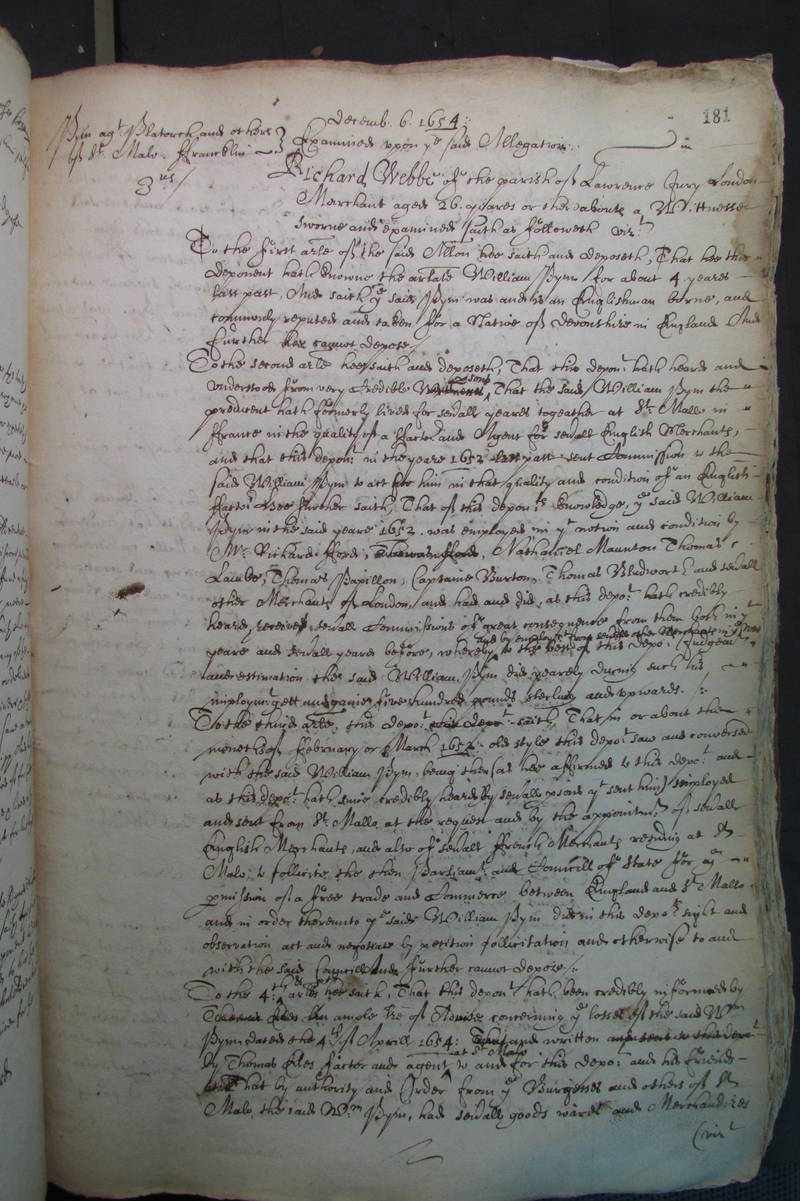 181
Decemb. 6. 1654:
Pym agt Blatorch and others
of St. Malo. Francklin
Examined upon ye said Allegation.
3us
Richard Webbe of the parish of Lawrence Jury London
Merchant aged 26. yeares or thereabouts a Wittnesse
sworne and examined saith as followeth vizt
To the first arle of the said Allon hee saith and deposeth, That hee this
deponent hath knowne the arlate William Pym for about 4 yeares
last past, And saith ye said Pym was and is an Englishman borne, and
commonly reputed and taken for a Native of Devonshire in England And
further hee cannot depose
To the second arle hee saith and deposeth, That this depont hath heard and
understood from very Credible psons That the said William Pym the
producent hath formerly lived for seuall yeares togeather at St. Mallo in
ffrance in the quality of a ffactor and Agent for seuall English Merchants,
and that this depont in the yeare 1652 sent Commission to the
said William Pym to act for him in that quality and condition of an English
ffactor. Hee further saith, That of this deponts knowledge, ye said William
Pym in the said yeare 1652. was employed in ye notion and condition by
Mr. Richard fford, Nathaneel Maunton Thomas
Lambe, Thomas Papillon, Captaine Burton, Thomas Bludworth and seuall
other Merchants of London, and had and did, as this depot hath credibly
heard, receive seuall Commissions of great consequence from them both in ye
yeare and seuall yeares before, whereby and by employmt from seuall other Merchants in
to the best of this depots Judgemt
and estimation the said William Pym did yearely during such his
imployment gett and gaine five hundred pounds sterling and upwards.
To the third arle, this depot saith, That in or about the
moneth of February or March 1652: old style this depot saw and conversed
with the said William Pym, being then (as hee affirmed to this depot and
as this depot hath since credibly heard by seuall psons yt sent him) imployed
and sent from St. Mallo at the request and by the appointmt of seuall
English Merchants, and also of seuall French Merchants residing at St
Malo, to sollicite the then Parliamt and Councill of State for a
pmission of a free trade and Commerce between England and St Mallo
and in order thereunto ye said William Pym did in this depots sight and
observation act and negotiate by petition sollicitation and otherwise to and
with the said Councill And further cannot depose.
To the 4th arle hee saith, That this depont hath been credibly informed by
an ample of concerning ye losses of the said Wm
Pym, dated the 4th of Aprill 1654: and written
at St Malo
by Thomas Eles factor and agent to and for this depot and his friends
That by authority and Order from ye Burgesses and others of St
Malo, the said Wm Pym, had seuall goods wares and Merchandizes
(vizt